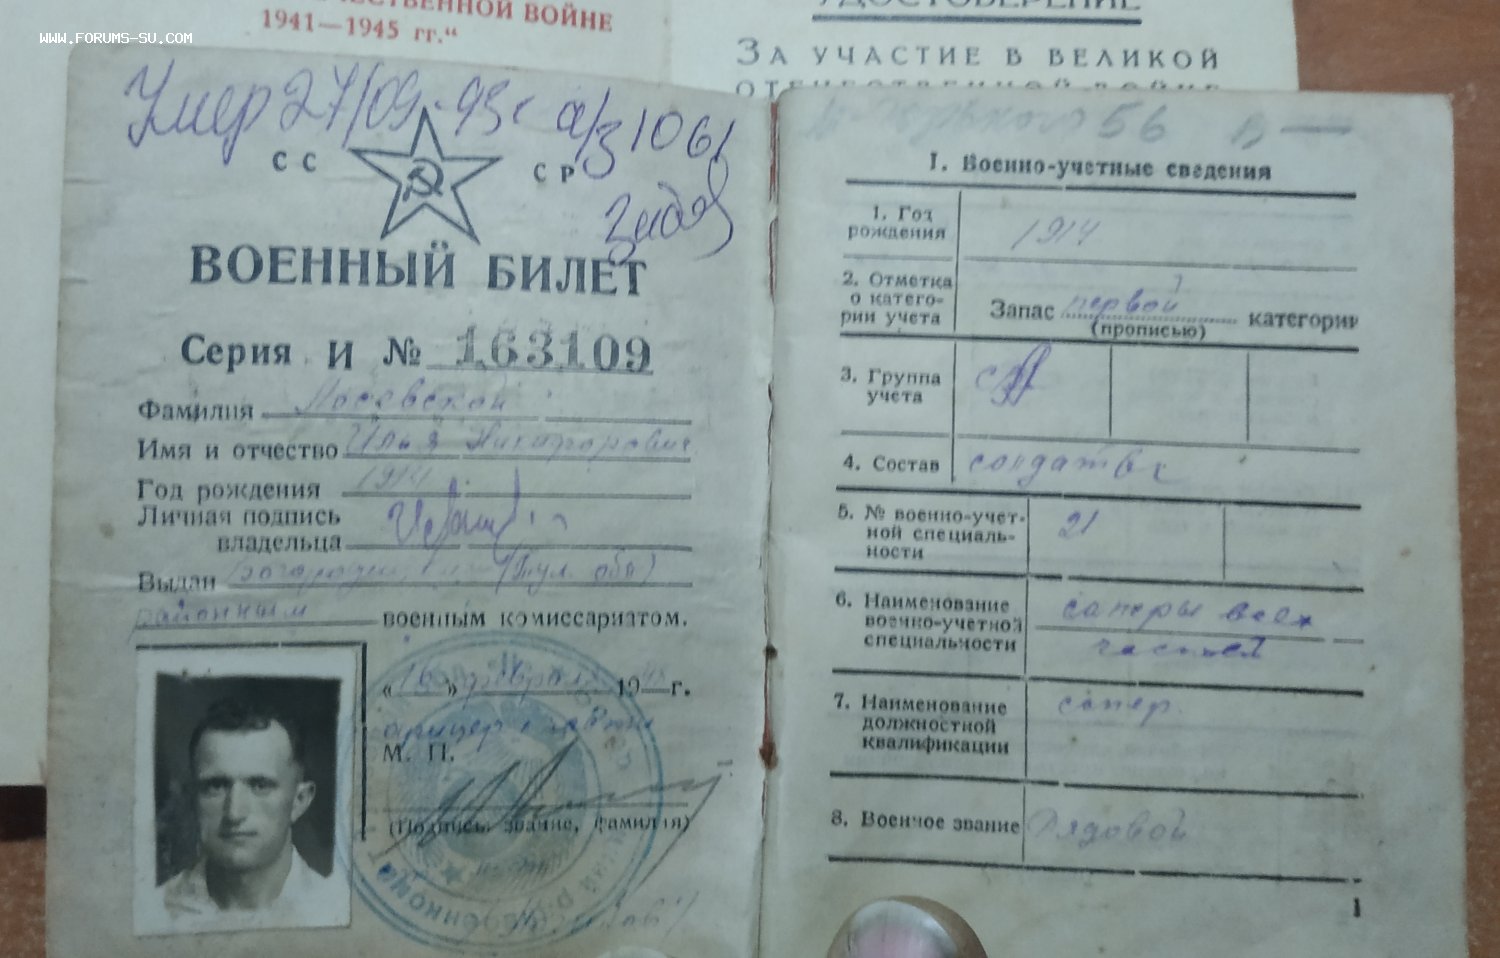 WWW.FORUMS-SU.COM
ЕСТВЕННОЙ ВОЙНЕ
1941—1945 гг."
УДОСТОВЕРЕНИЕ
ЗА УЧАСТИЕ В ВЕЛИКОЙ
ОТЕЧЕСТВЕННОЙ ВОЙНЕ
Умер 27/09-93г а/з 1061
СС СР
ВОЕННЫЙ БИЛЕТ
Серия И № 163109
Фамилия
Имя и отчество Илья Никифорович
Год рождения 1914
Личная подпись
владельца
Выдан (Тул. обл)
районным военным комиссариатом.
«16» февраля 19 г.
М. П.
(Подпись, звание, фамилия)
56
I. Военно-учетные сведения
1. Год рождения 1914
2. Отметка о категории учета Запас первой категории
(прописью)
3. Группа учета СА
4. Состав солдаты
5. № военно-учетной специальности 21
6. Наименование военно-учетной специальности саперы всех частей
7. Наименование должностной квалификации сапер
8. Военное звание Рядовой
1